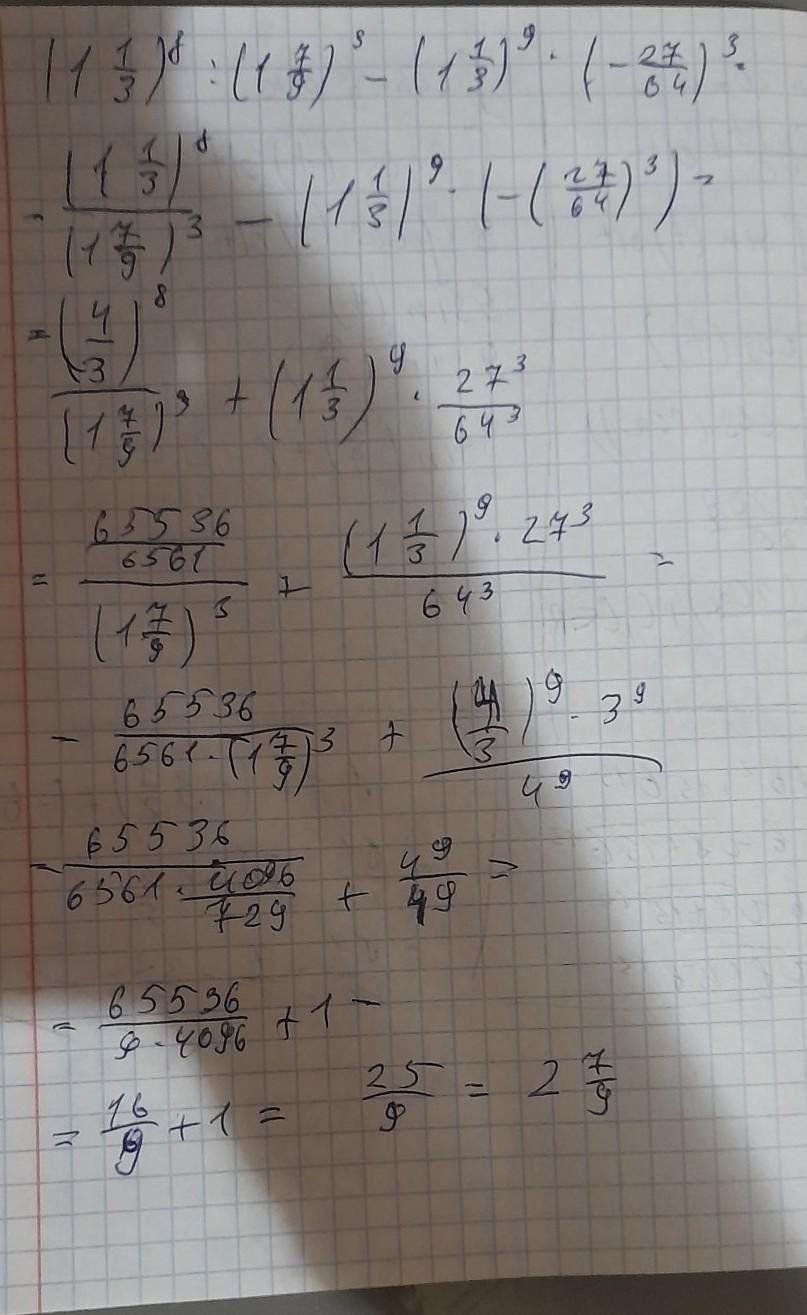 (1 1/3)^8 : (1 7/9)^3 - (1 1/3)^9 · (-27/64)^3 =
= (1 1/3)^8 / (1 7/9)^3 - (1 1/3)^9 · (-(27/64)^3) =
= (4/3)^8 / (1 7/9)^3 + (1 1/3)^9 · 27^3/64^3
= (65536/6561) / (1 7/9)^3 + ((1 1/3)^9 · 27^3) / 64^3 =
= 65536 / (6561 · (1 7/9)^3) + ((4/3)^9 · 3^9) / 4^9
= 65536 / (6561 · 4096/729) + 4^9/4^9 =
= 65536 / (9 · 4096) + 1 =
= 16/9 + 1 = 25/9 = 2 7/9